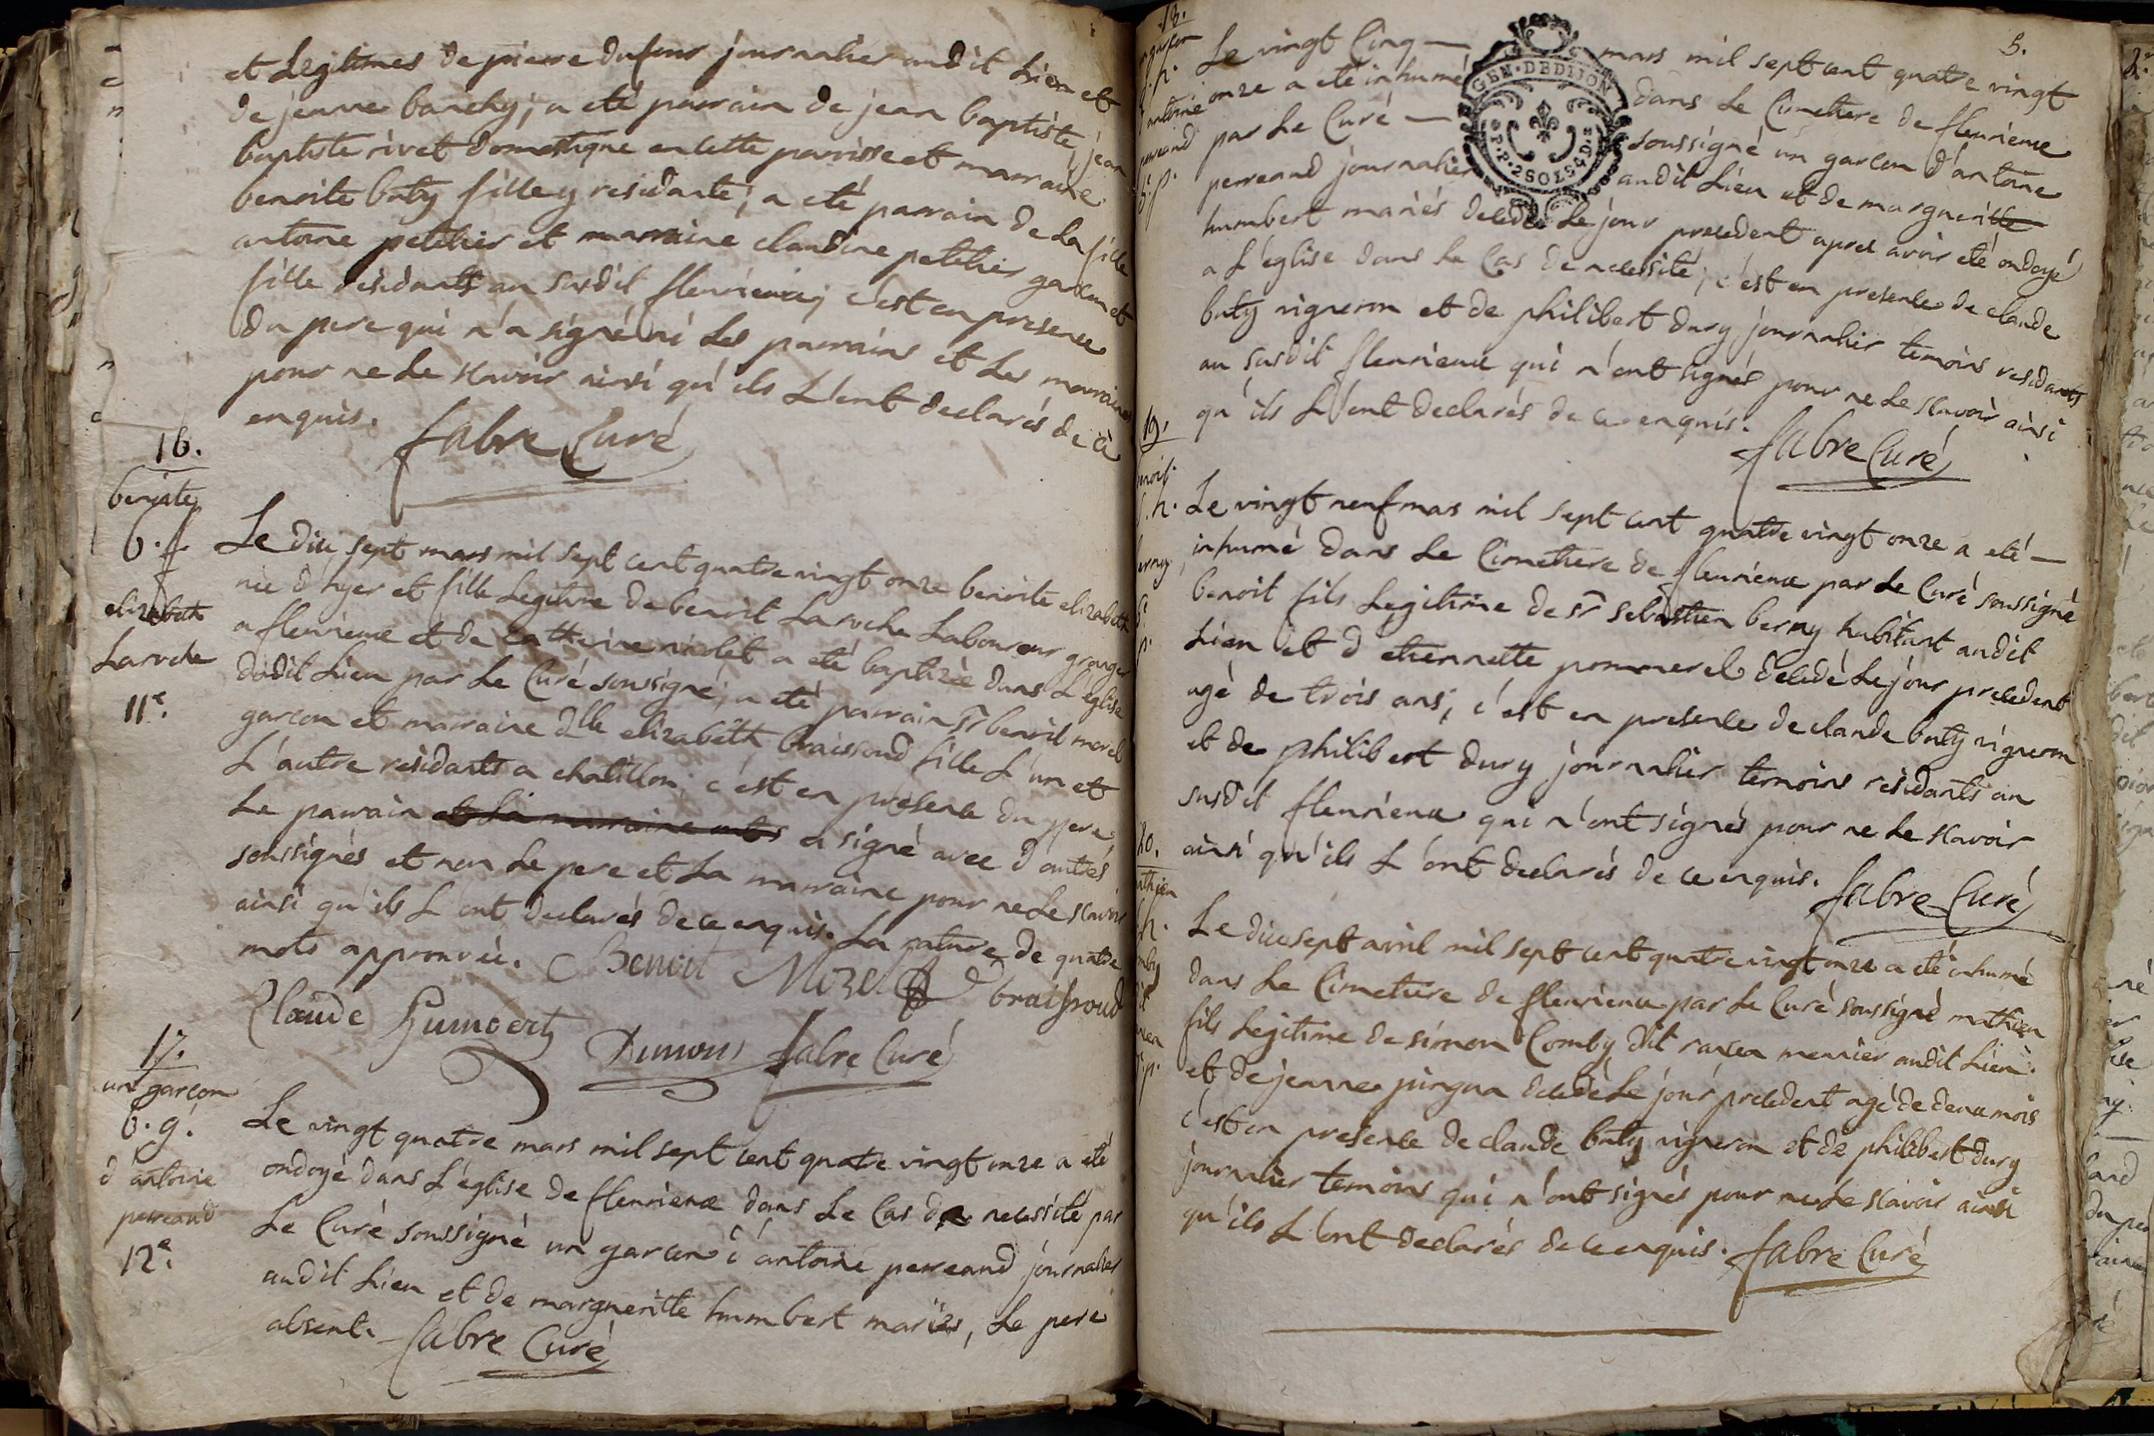 et Legitimes de pierre dufour journalier audit Lieu et
de jeanne banchy; a eté parrain de jean baptiste, jean
baptiste rivet domestique en cette parrisse et marraine
benoite buty fille y residante; a eté parrain de La fille
antoine petitier et marraine claudine petitier garcon et
fille residants au susdit fleurieux; c'est en presence
du pere qui n'a signé ni Les parrains et Les marraines
pour ne Le scavoir ainsi qu'ils L'ont declarés de ce
enquis. fabre Curé
16.
benoite
b. f.
elizabeth
Laroche
11e.
Le dix sept mars mil sept cent quatre vingt onze benoite elizabeth
née d'hyer et fille Legitime de benoit Laroche Laboureur granger
a fleurieux et de catherine violet a eté baptizée dans L'eglise
dudit Lieu par Le Curé soussigné, a eté parrain sr benoit morel
garcon et marraine dlle elizabeth braissoud fille L'un et
L'autre residants a chatillon. c'est en presence du pere
Le parrain et La marraine ont a signé avec d'autres
soussignés et non Le pere et La marraine pour ne Le scavoir
ainsi qu'ils L'ont declarés de ce enquis. La rature de quatre
mots approuvée. Benoit Morel braissoud
Claude Humbert Dumons fabre Curé
17.
un garcon
b. g.
d'antoine
perreaud
12e.
Le vingt quatre mars mil sept cent quatre vingt onze a eté
ondoyé dans L'église de fleurieux dans Le Cas de necessité par
Le Curé soussigné un garcon d'antoine perreaud journalier
audit Lieu et de margueritte humbert mariés, Le pere
absent. fabre Curé
5.
18.
garcon
h.
d'antoine
perreaud
Le vingt Cinq — mars mil sept cent quatre vingt
onze a eté inhumé dans Le Cimetiere de fleurieux
par Le Curé — soussigné un garcon d'antoine
perreaud journalier audit Lieu et de margueritte
GEN. DE DIJON
P.P. 2 SOLS 6 D.
humbert mariés decedé Le jour precedent apres avoir eté ondoyé
a L'église dans Le Cas de necessité; c'est en presence de claude
buty vigneron et de philibert dury journalier temoins residants
au susdit fleurieux qui n'ont signés pour ne Le scavoir ainsi
qu'ils L'ont declarés de ce enquis. fabre Curé
19.
benoit
h.
berny
Le vingt neuf mars mil sept cent quatre vingt onze a eté —
inhumé dans Le Cimetiere de fleurieux par Le Curé soussigné
benoit fils Legitime de sr sebastien berny habitant audit
Lieu et d'etiennette pommerel decedé Le jour precedent
agé de trois ans; c'est en presence de claude buty vigneron
et de philibert dury journalier temoins residants au
susdit fleurieux qui n'ont signés pour ne Le scavoir
ainsi qu'ils L'ont declarés de ce enquis. fabre Curé
20.
mathieu
h.
Le dix sept avril mil sept cent quatre vingt onze a eté inhumé
dans Le Cimetiere de fleurieux par Le Curé soussigné mathieu
fils Legitime de simon Comby dit meunier audit Lieu
et de jeanne pingon decedé Le jour precedent agé de deux mois
c'est en presence de claude buty vigneron et de philibert dury
journalier temoins qui n'ont signés pour ne Le scavoir ainsi
qu'ils L'ont declarés de ce enquis. fabre Curé